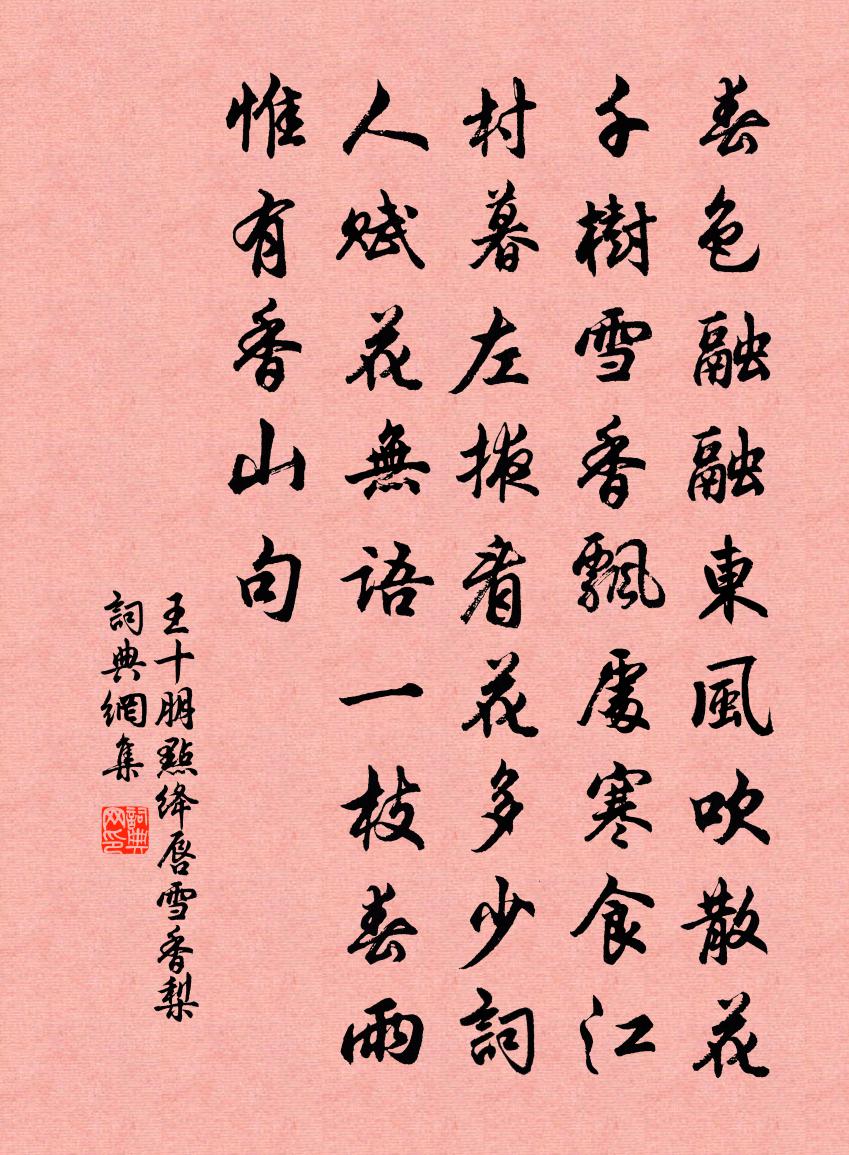 春色融融東風吹散花
千樹雪香飄處寒食江
村暮左掖看花多少詞
人賦花無語一枝春雨
惟有香山句
王十朋點绛唇雪香梨
詞典網集
詞典网印